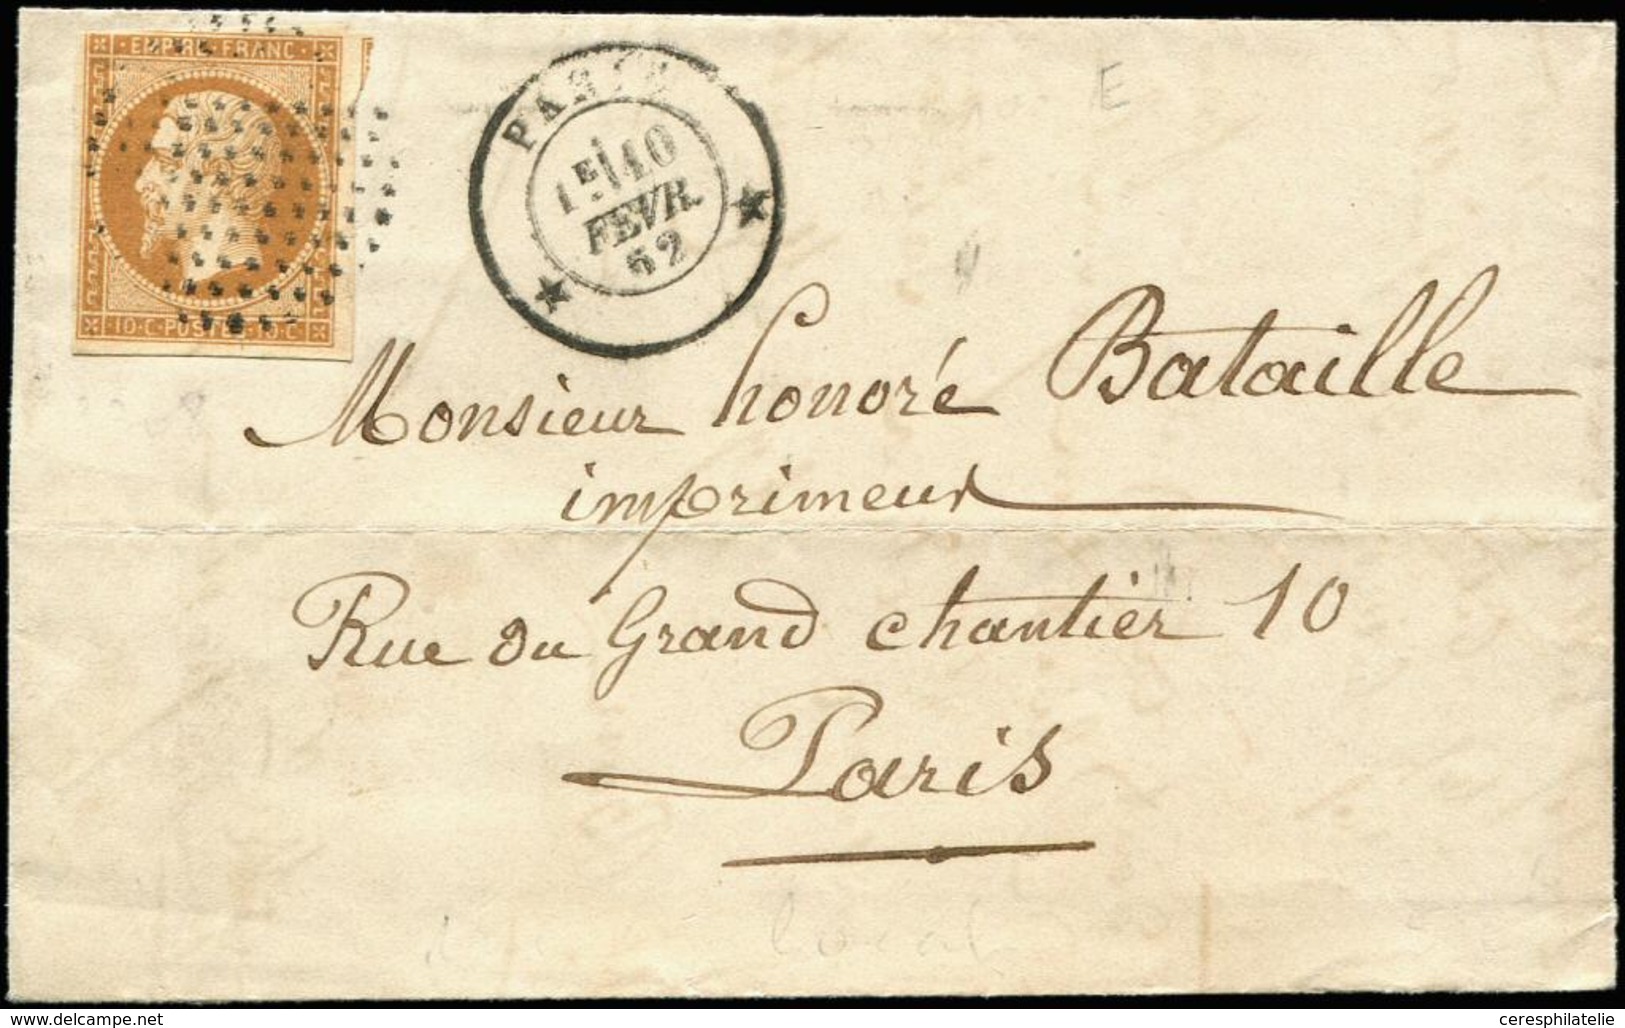 EMPIRE FRANC
10·C·POSTES·10·C
PARIS
1E 10
FEVR.
62
E
Monsieur honoré Bataille
imprimeur
Rue du Grand chantier 10
Paris
local
www.delcampe.net
ceresphilatelie